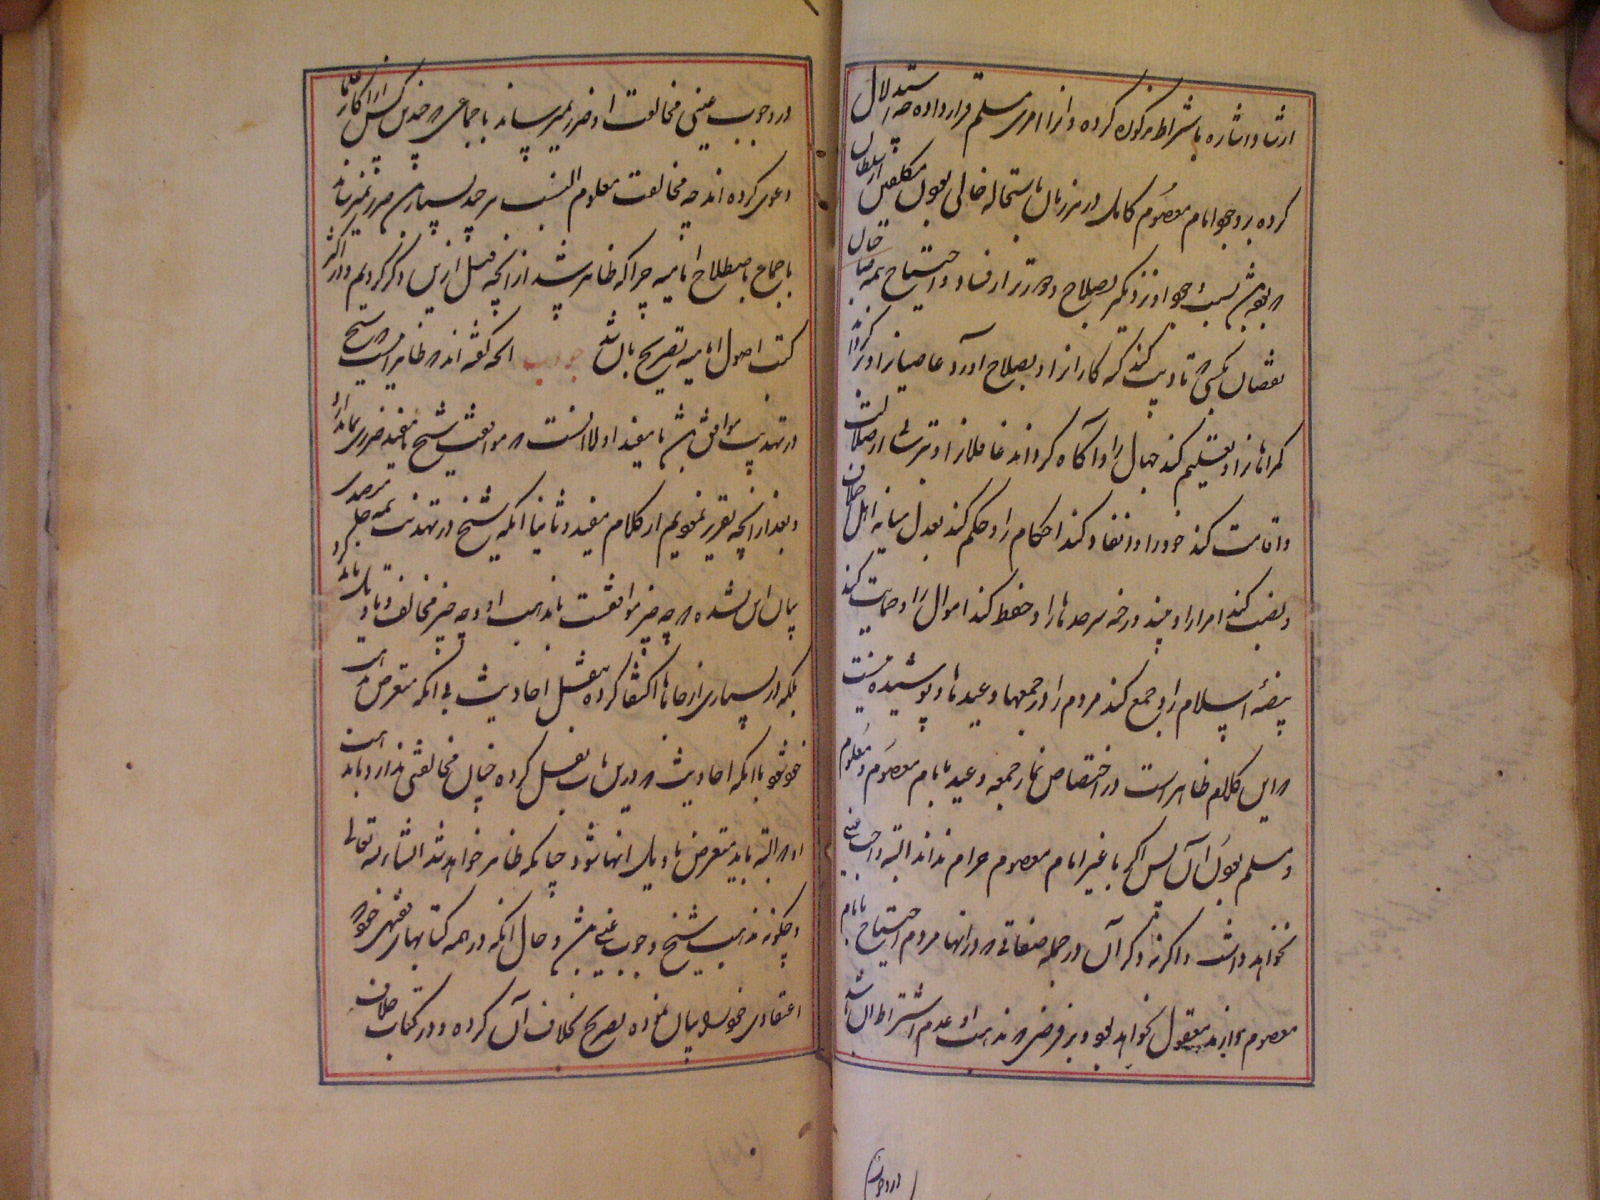 ارشاد و اشاره باشراط مذکوره کرده و انرا امری مسلم قرار داده چه استدلال
کرده بر وجود امام معصوم کامل در هر زمان باستحاله خالی بودن مکلفین از سلطان
بسبب وجود او نزدیکتر بصلاح و دورتر از فساد و احتیاج همه صاحبان
نقصان بکسی تادیب کند که کار از او بصلاح آورد عاصیانرا و
کمراهانرا و تعلیم کند جهال را و آکاه کرداند غافلانرا و بترساند از ضلالت
و اقامت کند حدود را و انفاذ کند احکام را و حکم کند بعدل میانه اهل خلاف
و نصب کند امرا را و ببندد رخنه سرحدها را و حفظ کند اموال را و حمایت کند
بیضهٔ اسلام را و جمع کند مردم را در جمعها و عیدها و پوشیده نیست
این کلام ظاهر است در اختصاص نماز جمعه و عید بامام معصوم و معلوم
و مسلم بودن آن پس اکر با غیر امام معصوم حرام نداند البته واجب عینی
نخواهد دانست و اکرنه ذکر آن در جمله صفاتی در انها مردم احتیاج بامام
معصوم دارند معقول نخواهد بود و بر فرضی مذهب او عدم اشتراط آن باشد
در وجوب عینی مخالفت او ضرر نمیرساند باجماعی چندین کس از اکابر علما
دعوی کرده اند چه مخالفت معلوم النسب هر چند بسیار باشد ضرر نمیرساند
باجماع باصطلاح امامیه چرا که ظاهر شد از انچه قبل ازین ذکر کردیم و در اکثر
کتب اصول امامیه تصریح بان شد جواب انچه کفته اند ظاهر اینست شیخ
در تهذیب موافق باشد با مفید اولا انست موافقت شیخ با مفید ضرری بما ندارد
و بعد از انچه تقریر نمودیم از کلام مفید و ثانیا انکه شیخ در تهذیب همه جا
بیان این نشده چه چیز موافقست با مذهب او و چه چیز مخالف و تاویل باید کرد
بلکه در بسیاری از جاها اکتفا کرده بنقل احادیث بی انکه متعرض مذهب
خود شود با انکه احادیث درین باب نقل کرده چنان مخالفتی ندارد با مذهب
او البته باید متعرض تاویل انها شود چنانکه ظاهر خواهد شد انشاء الله تعالی
و چکونه مذهب شیخ وجوب عینی باشد و حال انکه در همه کتابهای فقهی خود
اعتقادی خود را بیان نموده تصریح بخلاف آن کرده و در کتاب خلاف